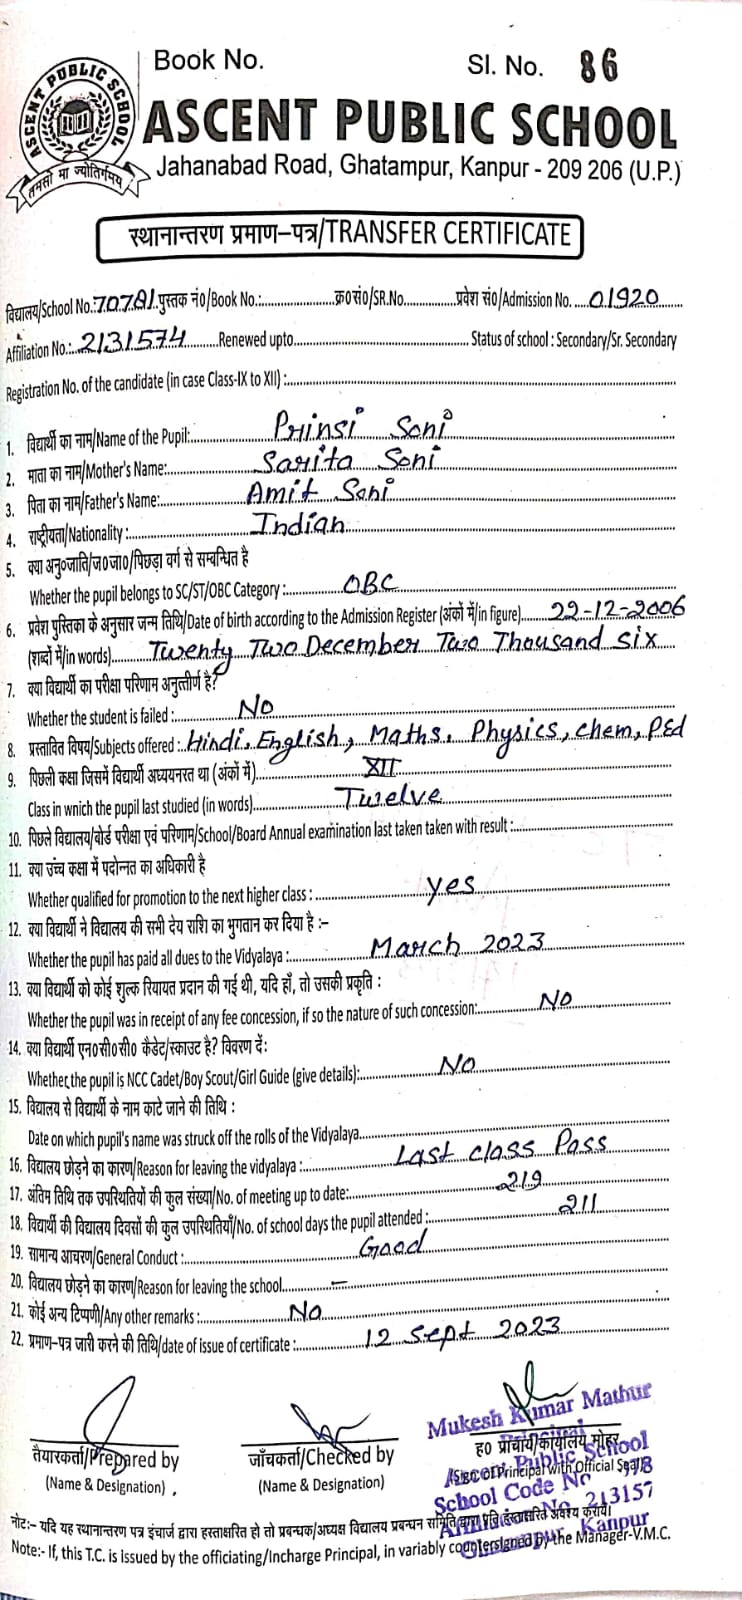 Book No.
Sl. No. 86
ASCENT PUBLIC SCHOOL
तमसो मा ज्योतिर्गमय
ASCENT PUBLIC SCHOOL
Jahanabad Road, Ghatampur, Kanpur - 209 206 (U.P.)
स्थानान्तरण प्रमाण-पत्र/TRANSFER CERTIFICATE
विद्यालय/School No.:70781 पुस्तक नं०/Book No.:.......... क्र०सं०/SR.No.......... प्रवेश सं०/Admission No. ....01920
Affiliation No.:..2131574.......Renewed upto.......... Status of school : Secondary/Sr. Secondary
Registration No. of the candidate (in case Class-IX to XII) :..........
1. विद्यार्थी का नाम/Name of the Pupil:..........Prinsi Soni
2. माता का नाम/Mother's Name:..........Sarita Soni
3. पिता का नाम/Father's Name:..........Amit Soni
4. राष्ट्रीयता/Nationality :..........Indian
5. क्या अनु०जाति/ज०जा०/पिछड़ा वर्ग से सम्बन्धित है
Whether the pupil belongs to SC/ST/OBC Category :..........OBC
6. प्रवेश पुस्तिका के अनुसार जन्म तिथि/Date of birth according to the Admission Register (अंकों में/in figure)......22-12-2006
(शब्दों में/in words)..........Twenty Two December Two Thousand Six
7. क्या विद्यार्थी का परीक्षा परिणाम अनुत्तीर्ण है?
Whether the student is failed :..........No
8. प्रस्तावित विषय/Subjects offered :.Hindi, English, Maths, Physics, Chem, P.Ed
9. पिछली कक्षा जिसमें विद्यार्थी अध्ययनरत था (अंकों में)..........XII
Class in wnich the pupil last studied (in words)..........Twelve
10. पिछले विद्यालय/बोर्ड परीक्षा एवं परिणाम/School/Board Annual examination last taken taken with result :..........
11. क्या उच्च कक्षा में पदोन्नत का अधिकारी है
Whether qualified for promotion to the next higher class :..........yes
12. क्या विद्यार्थी ने विद्यालय की सभी देय राशि का भुगतान कर दिया है :-
Whether the pupil has paid all dues to the Vidyalaya :..........March 2023
13. क्या विद्यार्थी को कोई शुल्क रियायत प्रदान की गई थी, यदि हाँ, तो उसकी प्रकृति :
Whether the pupil was in receipt of any fee concession, if so the nature of such concession:..........No
14. क्या विद्यार्थी एन०सी०सी० कैडेट/स्काउट है? विवरण दें:
Whether the pupil is NCC Cadet/Boy Scout/Girl Guide (give details):..........No
15. विद्यालय से विद्यार्थी के नाम काटे जाने की तिथि :
Date on which pupil's name was struck off the rolls of the Vidyalaya..........
16. विद्यालय छोड़ने का कारण/Reason for leaving the vidyalaya :..........Last class Pass
17. अंतिम तिथि तक उपस्थितियों की कुल संख्या/No. of meeting up to date:..........219
18. विद्यार्थी की विद्यालय दिवसों की कुल उपस्थितियाँ/No. of school days the pupil attended :..........211
19. सामान्य आचरण/General Conduct :..........Good
20. विद्यालय छोड़ने का कारण/Reason for leaving the school..........—
21. कोई अन्य टिप्पणी/Any other remarks :..........No
22. प्रमाण-पत्र जारी करने की तिथि/date of issue of certificate :..........12 Sept 2023
Mukesh Kumar Mathur
Principal
तैयारकर्ता/Prepared by
जाँचकर्ता/Checked by
ह० प्राचार्य/कार्यालय मोहर
Ascent Public School
(Name & Designation)
(Name & Designation)
(Sign. of Principal with Official Seal)
School Code No
Affiliation No. 213157
Ghatampur, Kanpur
नोट:- यदि यह स्थानान्तरण पत्र इंचार्ज द्वारा हस्ताक्षरित हो तो प्रबन्धक/अध्यक्ष विद्यालय प्रबन्धन समिति द्वारा प्रति हस्ताक्षरित अवश्य करायें।
Note:- If, this T.C. is issued by the officiating/Incharge Principal, in variably countersigned by the Manager-V.M.C.